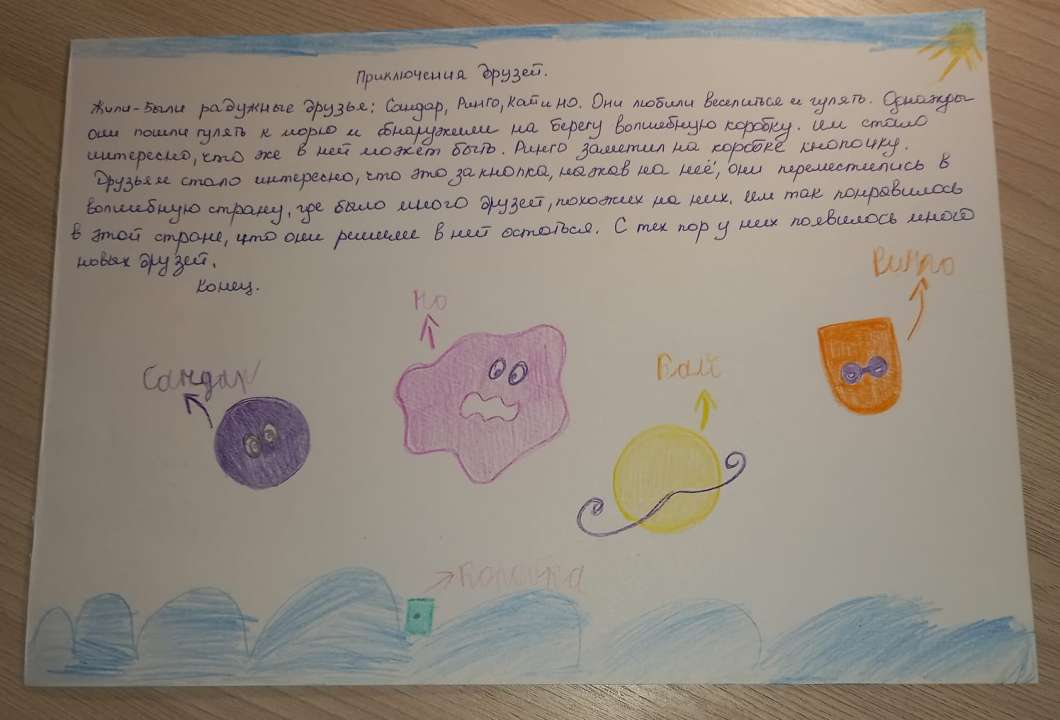 Приключения друзей.
Жили-были радужные друзья: Сандар, Ринго, Кат и но. Они любили веселиться и гулять. Однажды
они пошли гулять к морю и обнаружили на берегу волшебную коробку. им стало
интересно, что же в ней может быть. Ринго заметил на коробке кнопочку.
Друзьям стало интересно, что это за кнопка, нажав на неё, они переместились в
волшебную страну, где было много друзей, похожих на них. им так понравилось
в этой стране, что они решили в ней остаться. С тех пор у них появилось много
новых друзей.
Конец.
но
Сандар